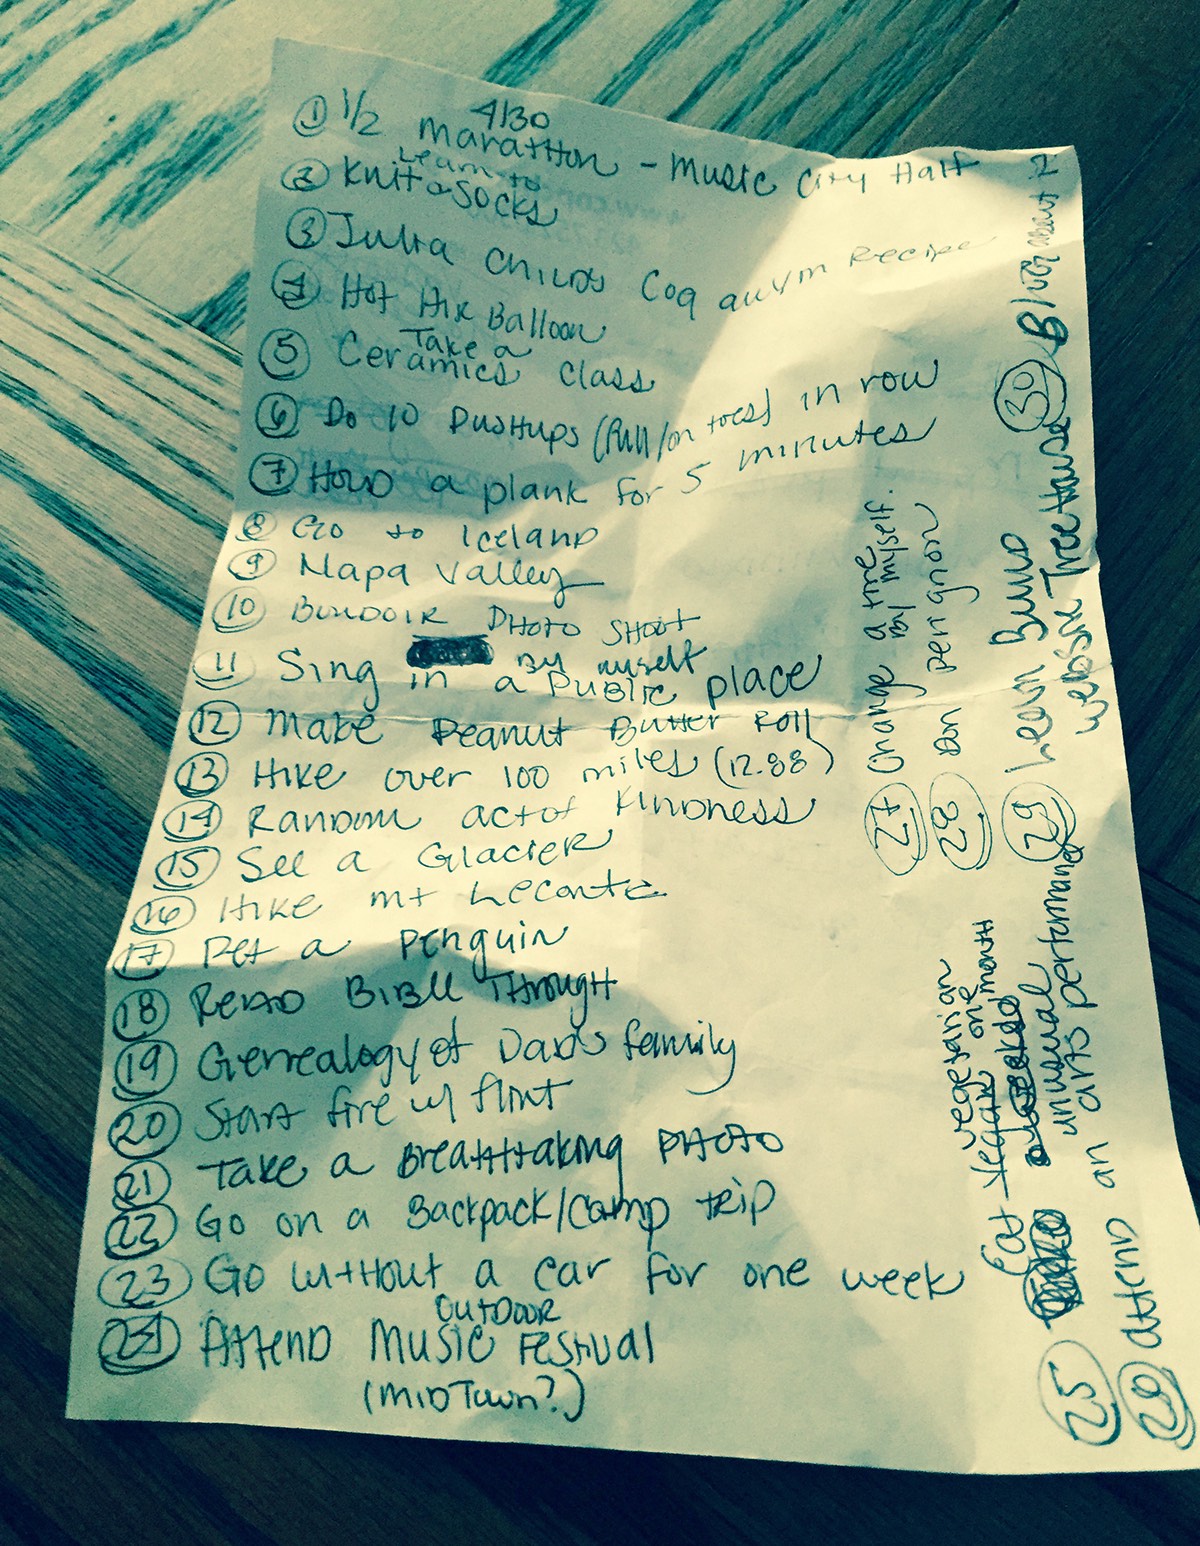 ① 1/2 marathon - Music City Half 4/30
② Learn to Knit socks
③ Julia Childs Coq auvm Recipe
④ Hot Air Balloon
⑤ Take a Ceramics class
⑥ Do 10 pushups (full/on toes) in row
⑦ Hold a plank for 5 minutes
⑧ Go to Iceland
⑨ Napa Valley
⑩ Boudoir photo shoot
⑪ Sing by myself in a public place
⑫ Make Peanut Butter Roll
⑬ Hike over 100 miles (12.88)
⑭ Random act of Kindness
⑮ See a Glacier
⑯ Hike mt Leconte
⑰ Pet a penguin
⑱ Read Bible Through
⑲ Genealogy of Dads family
⑳ Start fire w/ flint
㉑ Take a Breathtaking photo
㉒ Go on a Backpack/camp trip
㉓ Go without a car for one week
㉔ Attend outdoor Music Festival
(MidTown?)
㉕ Eat vegan vegetarian one month
attend an unusual arts performance
㉗ Change a tire by myself.
㉘ Don perignon
㉙ Learn Build website Treehouse
㉚ Blog about it